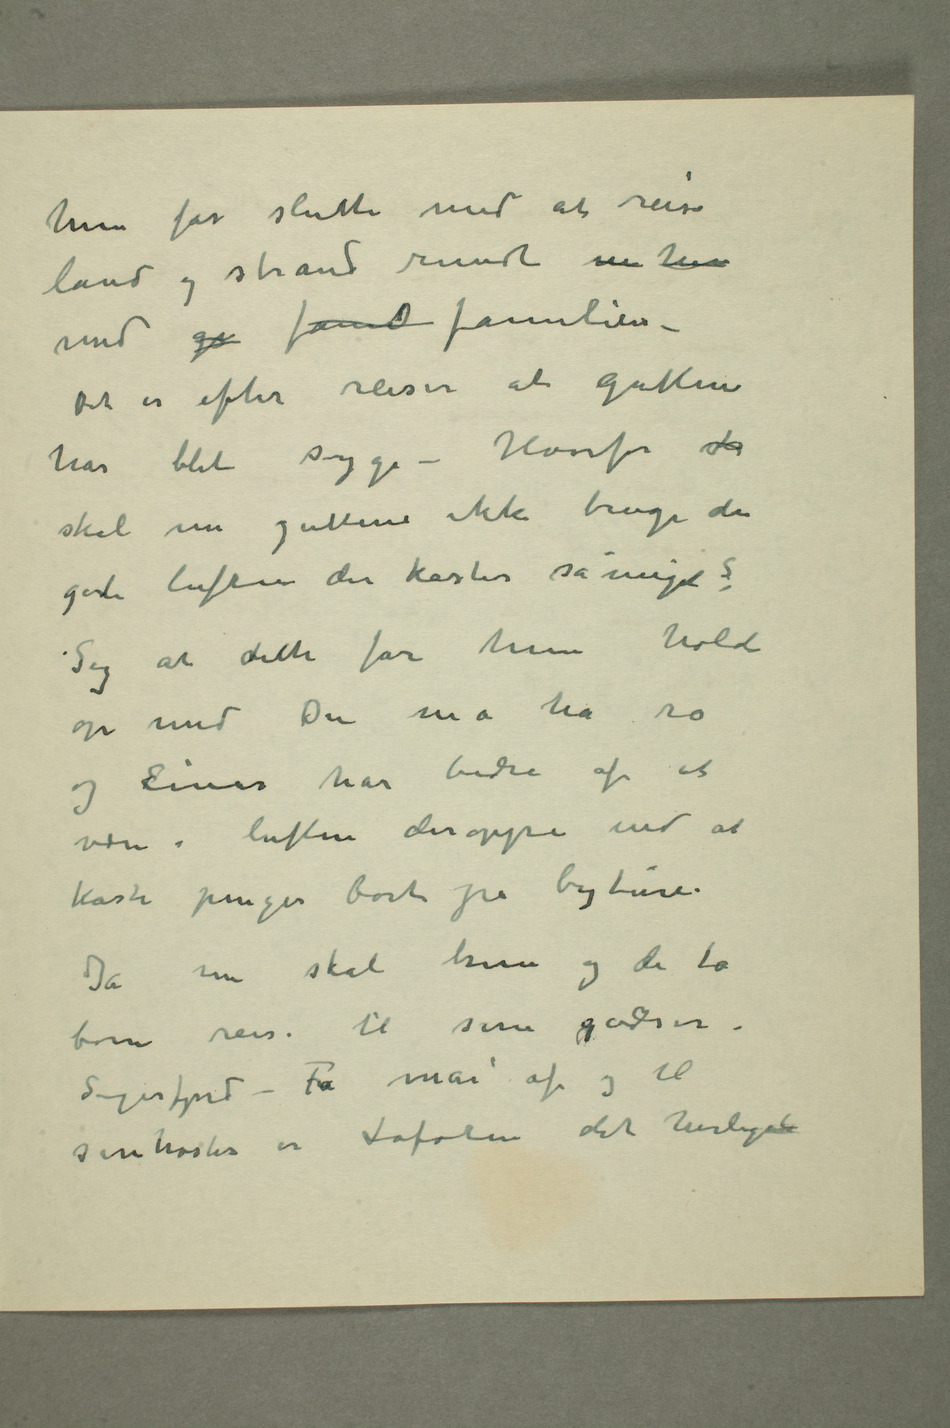 hun får slutte med at reise
land og strand rundt
med familien –
Det er efter reiser at guttene
har blet syge – Hvorfor
skal nu guttene ikke bruge den
gode luften der koster så meget?
Sig at dette får hun holde
op med Du må ha ro
og Einar har bedre af at
være i luften deroppe end at
kaste penger bort på byture.
Ja nu skal hun og de to
børn reise til sine godser i
Sigerfjord – Fra mai af og til
senhøsten er Lofoten det herligste